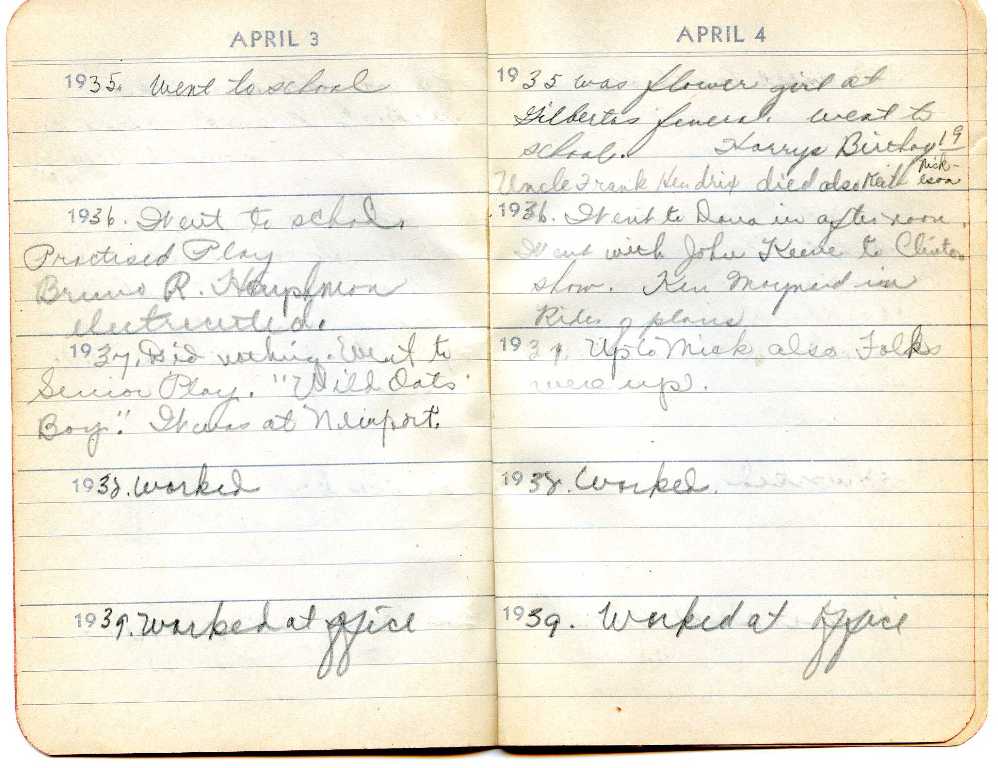 APRIL 3
1935. Went to school
1936. Went to schol.
Practised Play
Bruno R. Haupfmon
electrecuted.
1937. Did working. Went to
Senior Play. "Wild Oats
Boy". It was at Newport.
1938. Worked
1939. Worked at office
APRIL 4
1935 was flower girl at
Gilbertas funeral. went to
school. Harrys Birthay 19
Uncle Frank Hendrix died also Keith Nick-
elson
1936. Went to Dana in afternoon.
Went with John Keene to Clinton
show. Ken Maynard in
Rides of plans
1937. Up to Mick also Folks
were up.
1938. Worked.
1939. Worked at office